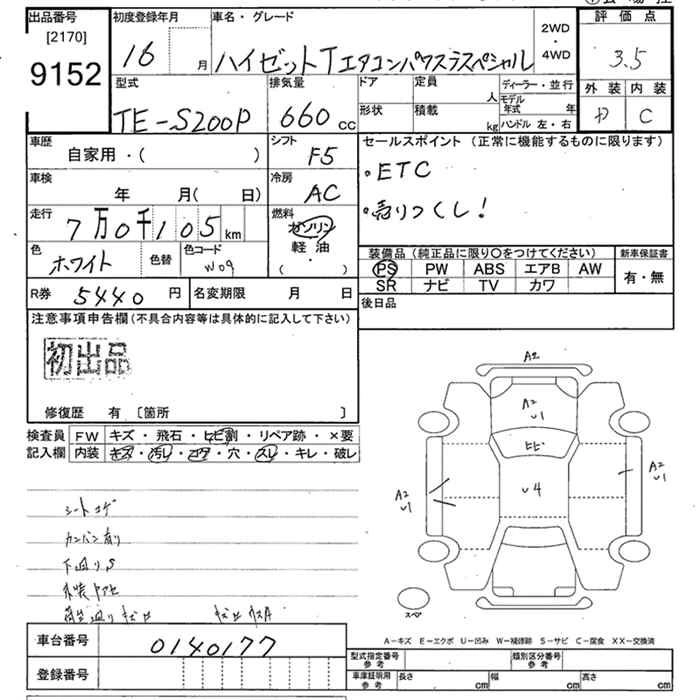 出品番号
[2170]
9152
初度登録年月
16 月
車名・グレード
ハイゼットTエアコンパワステスペシャル
2WD
・
4WD
評価点
3.5
外装 内装
D C
型式
TE-S200P
排気量
660 cc
ドア
定員
人
形状
積載
kg
ディーラー・並行
モデル年式 年
ハンドル 左・右
車歴
自家用・( )
シフト
F5
車検
年 月( 日)
冷房
AC
走行
7万0千105 km
燃料
ガソリン
軽油
( )
色
ホワイト
色替
色コード
W09
R券
5440 円
名変期限 月 日
セールスポイント (正常に機能するものに限ります)
・ETC
・売りつくし!
装備品(純正品に限り〇をつけてください)
PS PW ABS エアB AW
SR ナビ TV カワ
新車保証書
有・無
後日品
注意事項申告欄(不具合内容等は具体的に記入して下さい)
初出品
修復歴 有 〔箇所 〕
検査員
記入欄
FW キズ・飛石・ヒビ割・リペア跡・×要
内装 キズ・汚レ・コゲ・穴・スレ・キレ・破レ
シートコゲ
カンバン有り
下廻りS
A2
A2
U1
ヒビ
U4
A2
U1
A2
U1
スペア
A-キズ E-エクボ U-凹み W-補修跡 S-サビ C-腐食 XX-交換済
車台番号
0140177
登録番号
型式指定番号
参考
類別区分番号
参考
車庫証明用
参考
長さ cm
幅 cm
高さ cm